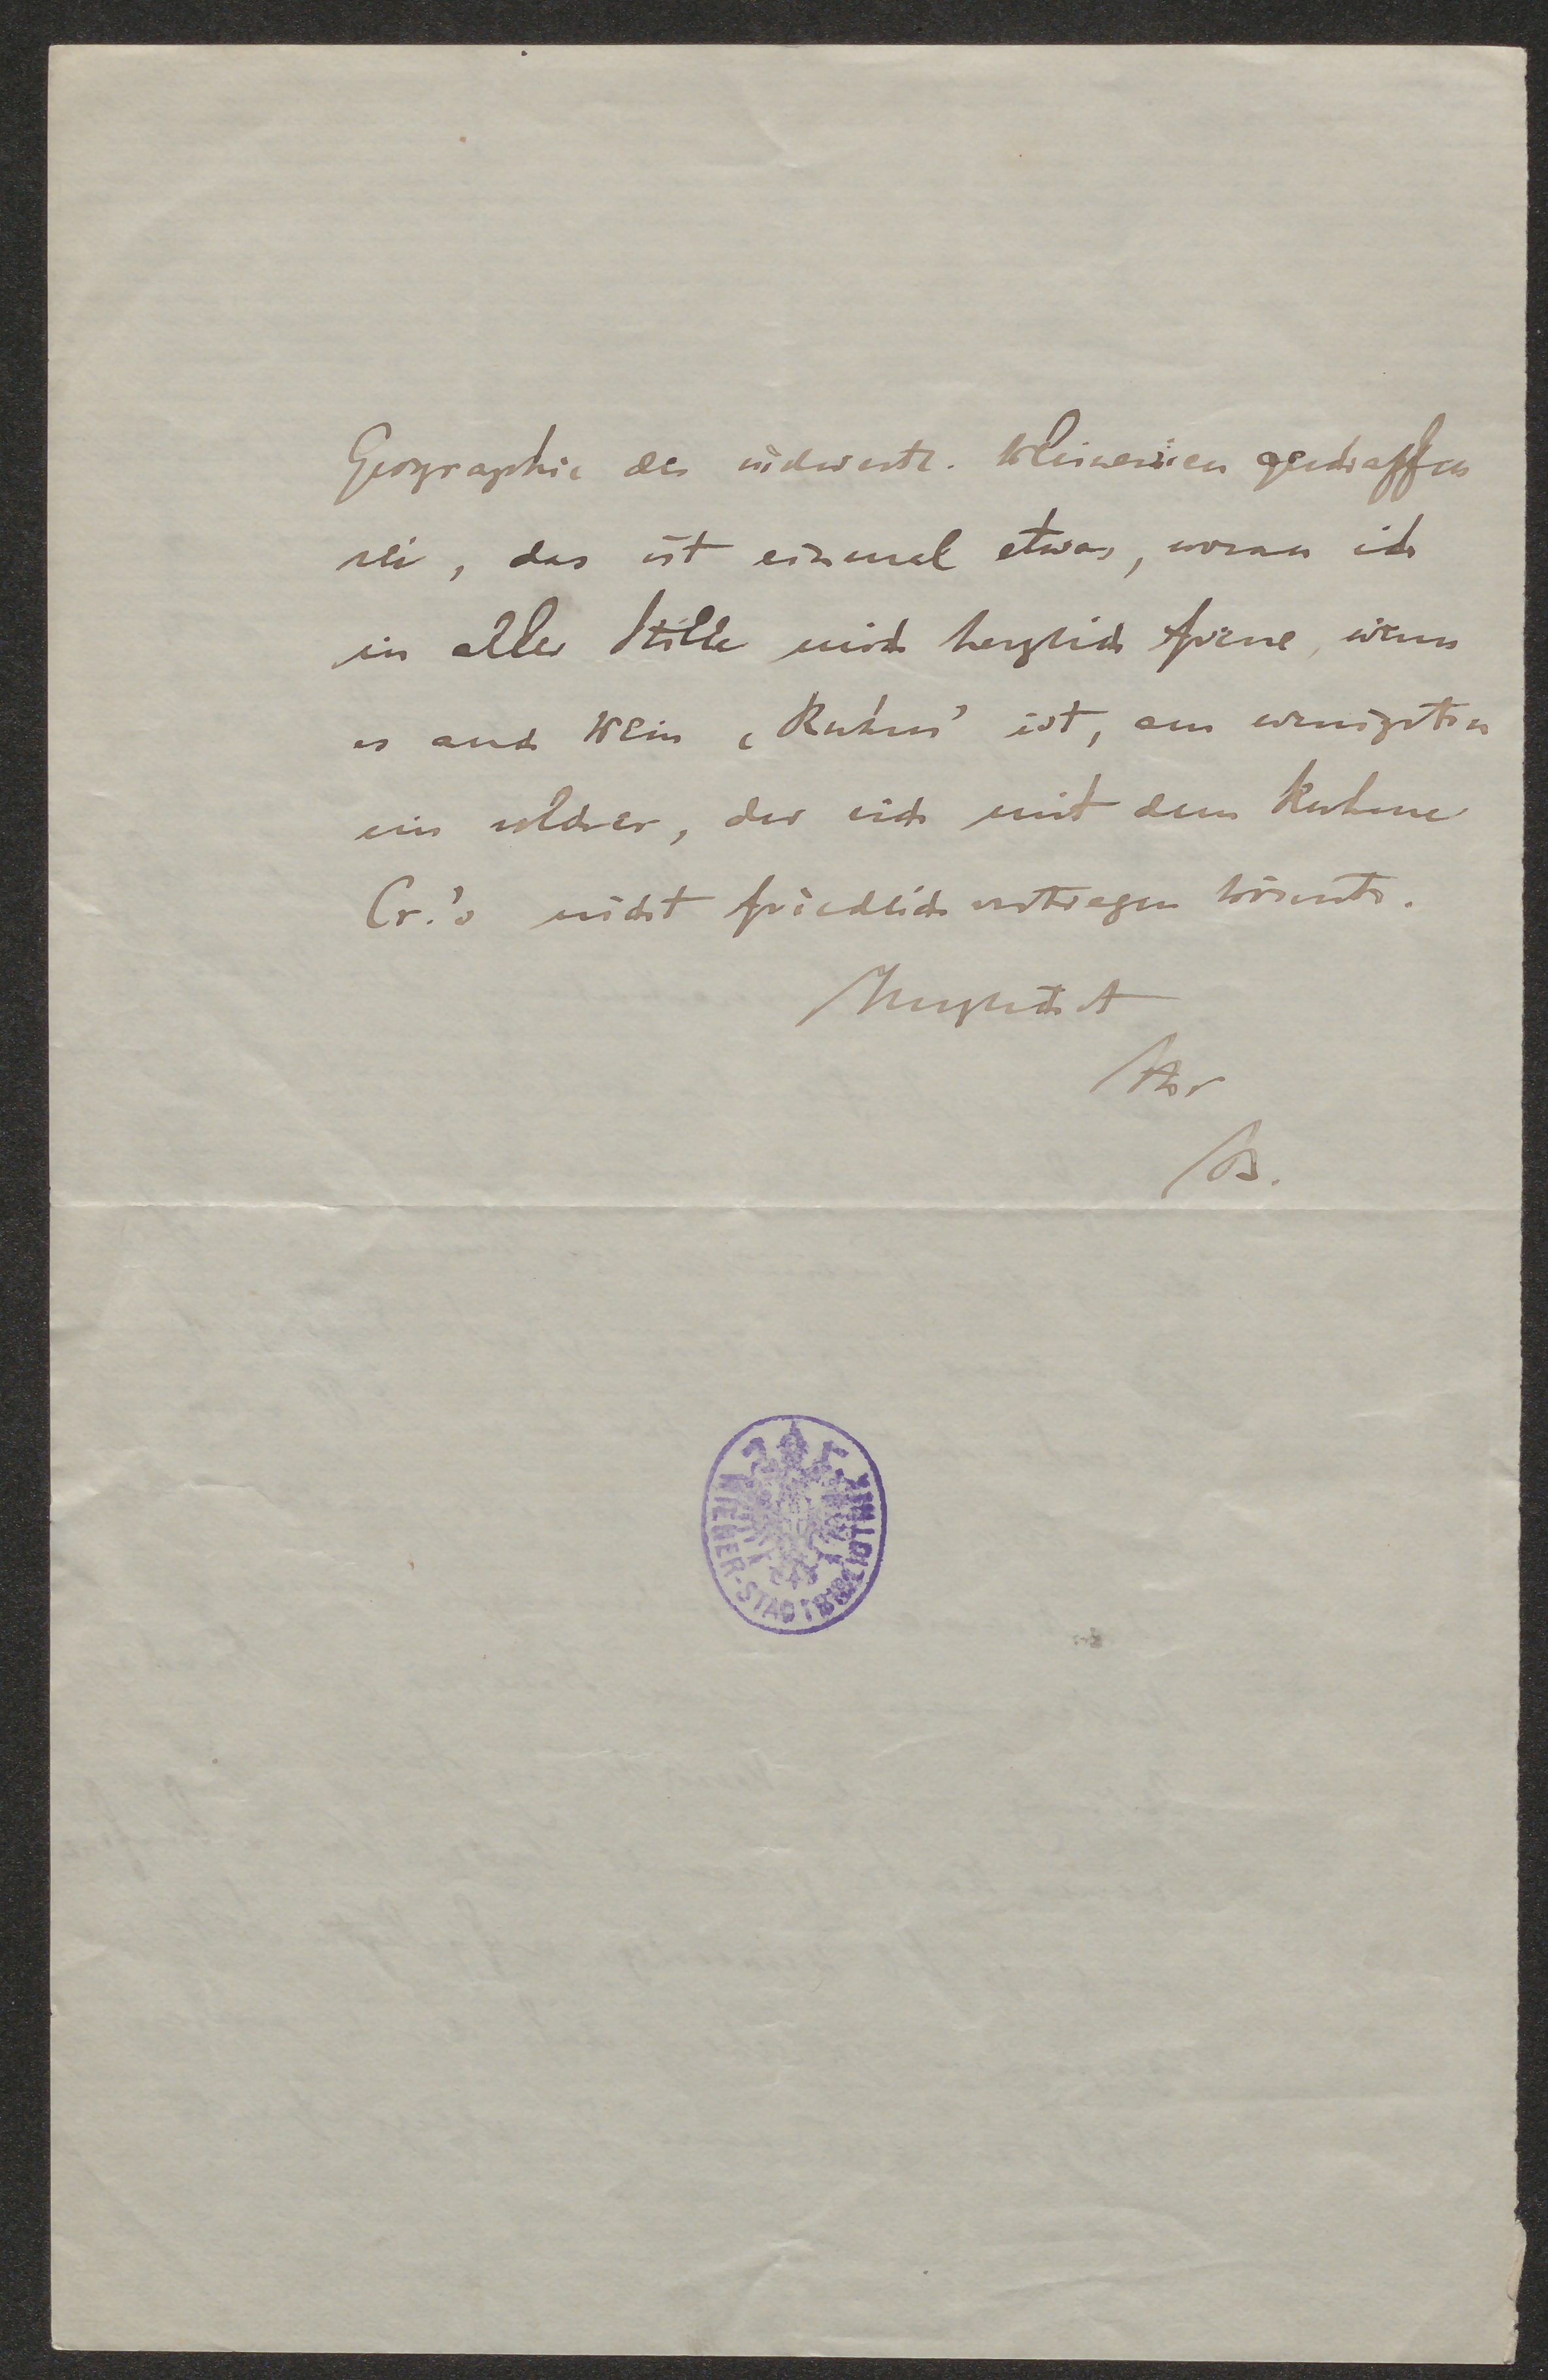 Geographie des südwestl. Kleinasien geschaffen
sei, das ist einmal etwas, woran ich
in aller Stille mich herzlich freue, wenn
es auch kein ‚Ruhm' ist, am wenigsten
ein solcher, der sich mit dem Ruhme
Cr.'s nicht friedlich vertragen könnte.
Herzlichst
Ihr
B.
WIENER-STADTBIBLIOTHEK